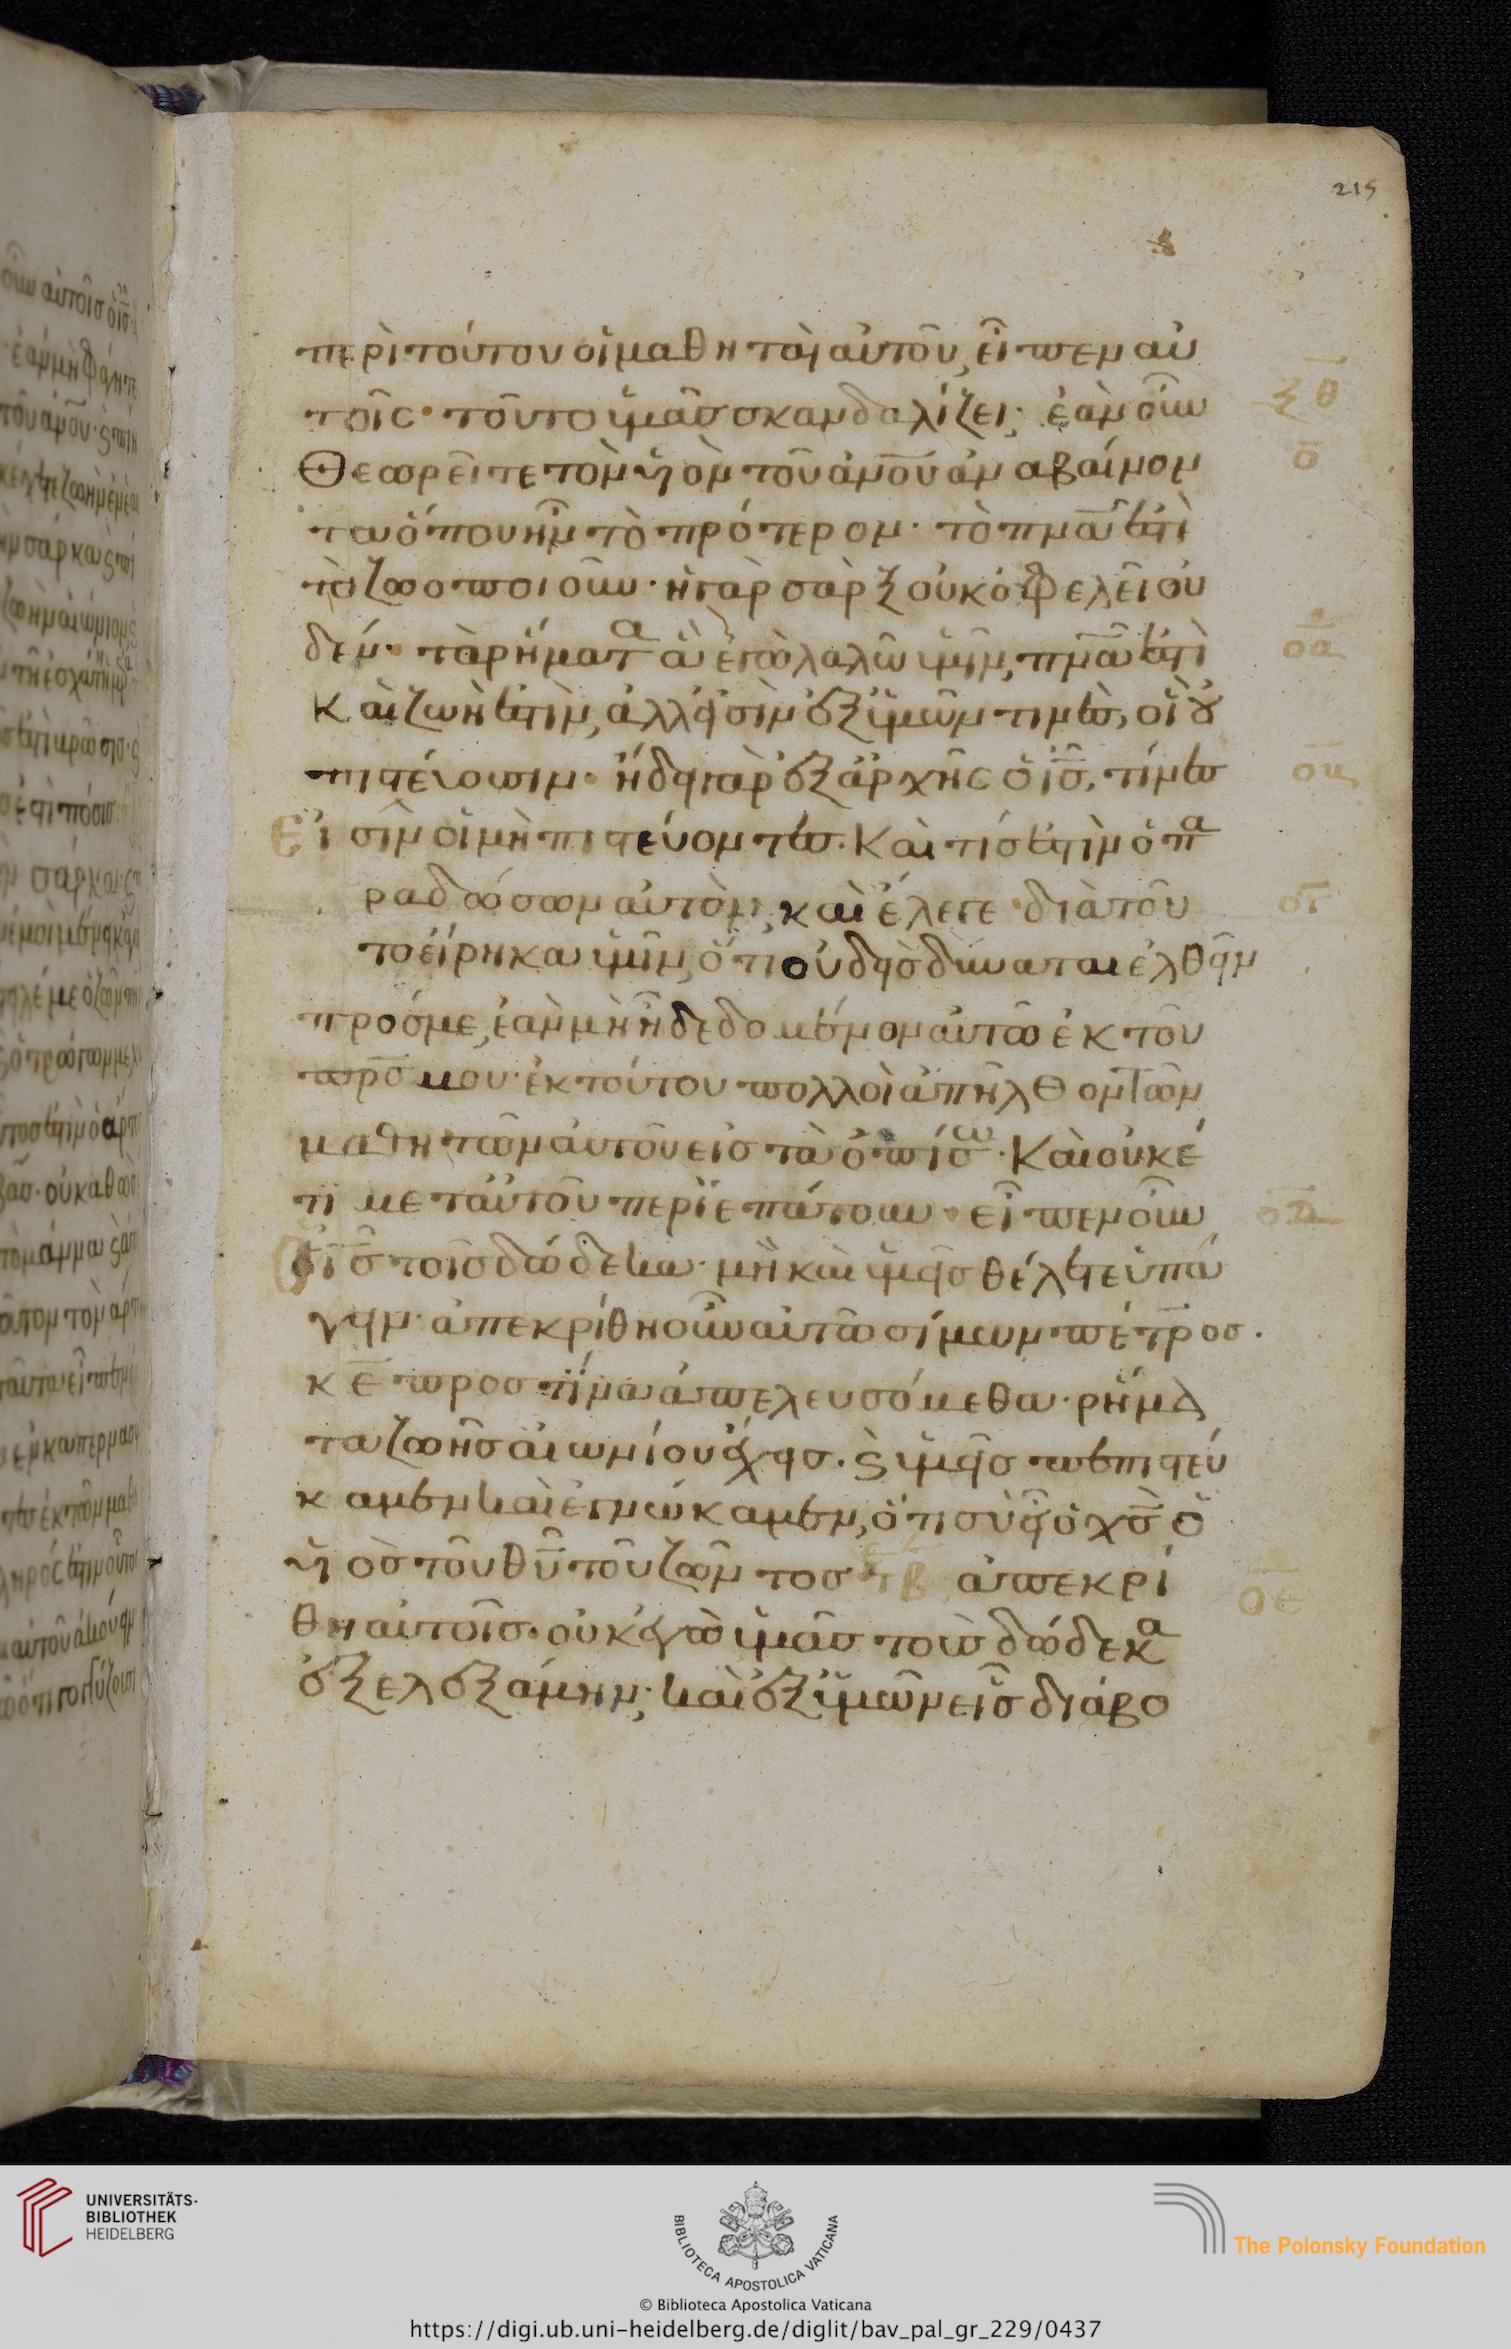 215
περὶ τούτου οἱ μαθηταὶ αὐτοῦ, εἶπεν αὐ
τοῖς· τοῦτο ὑμᾶς σκανδαλίζει; ἐὰν οὖν
ξθ
θεωρεῖτε τὸν υἱὸν τοῦ ἀνου ἀναβαίνον
ο
τα ὅπου ἦν τὸ πρότερον· τὸ πνα ἐστὶ
τὸ ζωοποιοῦν· ἡ γὰρ σὰρξ οὐκ ὀφελεῖ οὐ
δέν· τὰ ρήματα ἃ ἐγὼ λαλῶ ὑμῖν, πνα ἐστὶ
οα
καὶ ζωὴ ἐστὶν, ἀλλ εἰσὶν ἐξ ὑμῶν τινὲς, οἳ οὐ
πιστέυουσιν· ἤδει γὰρ ἐξ ἀρχῆς ὁ ις, τίνες
Εἰσὶν οἱ μὴ πιστέυοντες. καὶ τίς ἐστὶν ὁ πα
ραδώσων αὐτὸν, καὶ ἔλεγε διὰ τοῦ
ογ
το εἴρηκα ὑμῖν, ὅτι οὐδεὶς δύναται ἐλθεῖν
πρός με, ἐὰν μὴ ἦ δεδομένον αὐτῶ ἐκ τοῦ
πρς μου· ἐκ τούτου πολλοὶ ἀπῆλθον τῶν
μαθητῶν αὐτοῦ εἰς τὰ ὀπίσω· καὶ οὐκέ
τι μετ αὐτοῦ περιεπάτουν· εἶπεν οὖν
οδ
ὁ ις τοῖς δώδεκα· μὴ καὶ ὑμεῖς θέλετε ὑπά
γειν· ἀπεκρίθη οὖν αὐτῶ σίμων πέτρος.
κε προς τίνα ἀπελευσόμεθα· ρήμα
τα ζωῆς αἰωνίου ἔχεις. καὶ ὑμεῖς πεπιστεύ
καμεν καὶ ἐγνώκαμεν, ὅτι σὺ εἶ ὁ χς ὁ
υἱὸς τοῦ θυ τοῦ ζῶντος ἀπεκρί
οε
θη αὐτοῖς· οὐκ ἐγὼ ὑμᾶς τοὺς δώδεκα
ἐξελεξάμην; καὶ ἐξ ὑμῶν εἷς διάβο
UNIVERSITÄTS-
BIBLIOTHEK
HEIDELBERG
BIBLIOTECA APOSTOLICA VATICANA
The Polonsky Foundation
© Biblioteca Apostolica Vaticana
https://digi.ub.uni-heidelberg.de/diglit/bav_pal_gr_229/0437